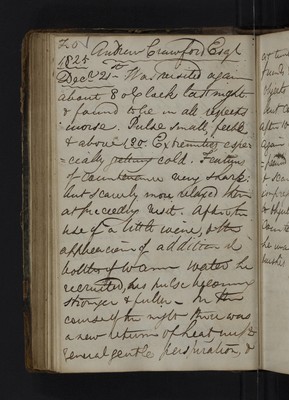 For Andrew Crawford Esqr
1825
Decr 21st Was visited again
about 8 o'Clock last night
& found to be in all respects
worse. Pulse small, feeble
& above 120. Extremities espe-
-cially cold. Features
of Countenance very sharp.
but scarcely more relaxed than
at preceeding visit. After the
use of a little wine, & the
application of additional
bottles of warm water he
recruited, his pulse becoming
stronger & fuller. In the
course of the night there was
a new return of heat with
general gentle perspiration, &